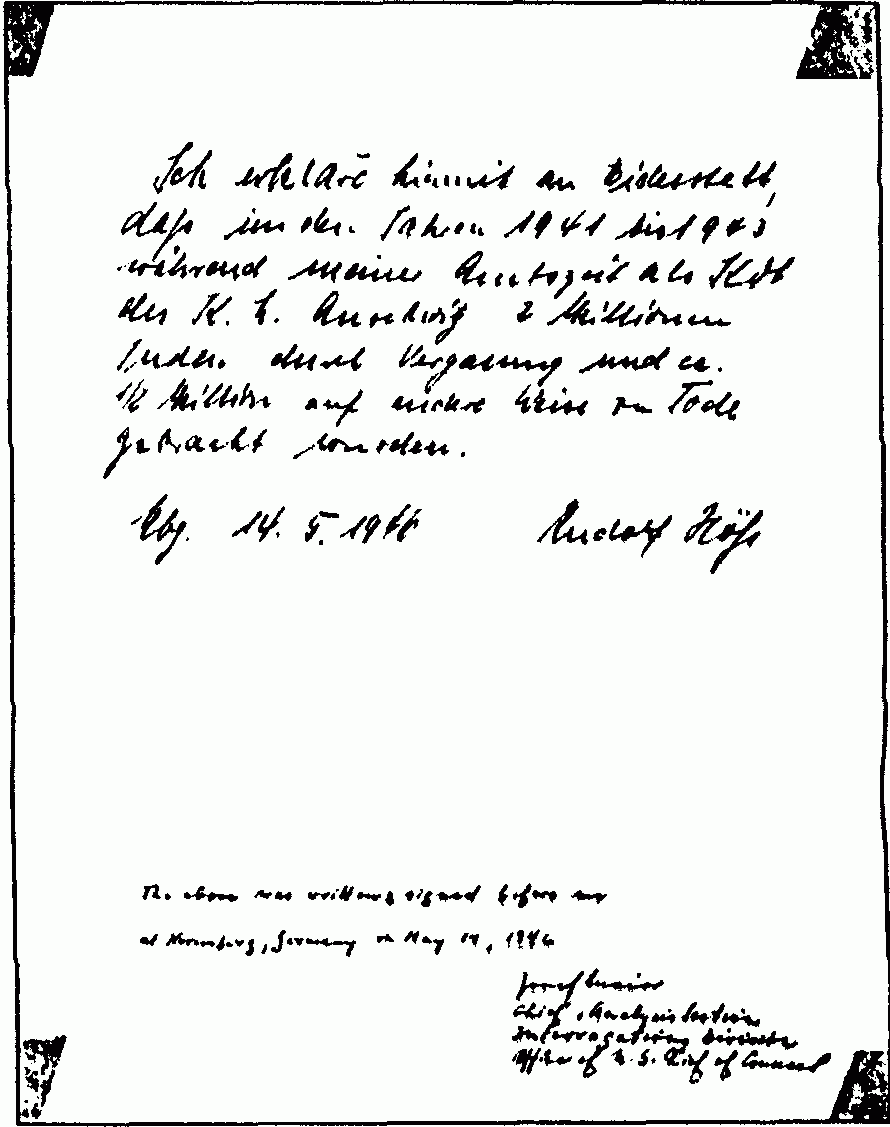 Ich erkläre hiermit an Eidesstatt,
daß in den Jahren 1941 bis 1943
während meiner Amtszeit als Kdt
des K. L. Auschwitz 2 Millionen
Juden durch Vergasung und ca.
1/2 Million auf andere Weise zu Tode
gebracht wurden.
Nbg. 14. 5. 1946 Rudolf Höß
The above was written & signed before me
at Nuremberg, Germany on May 14, 1946
Josef Maier
Chief, Analysis Section
Interrogation Division
Office of U. S. Chief of Counsel